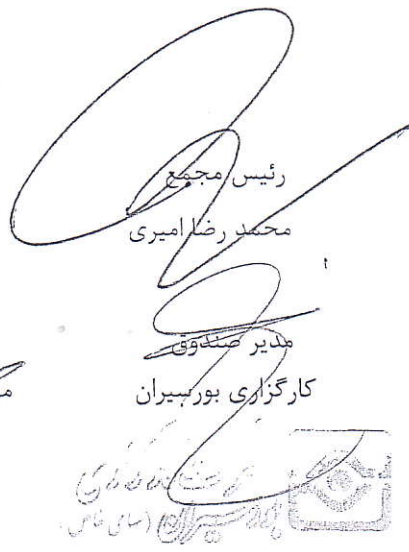 رئیس مجمع
محمد رضا امیری
مدیر صندوق
کارگزاری بورسیران
(سهامی خاص)